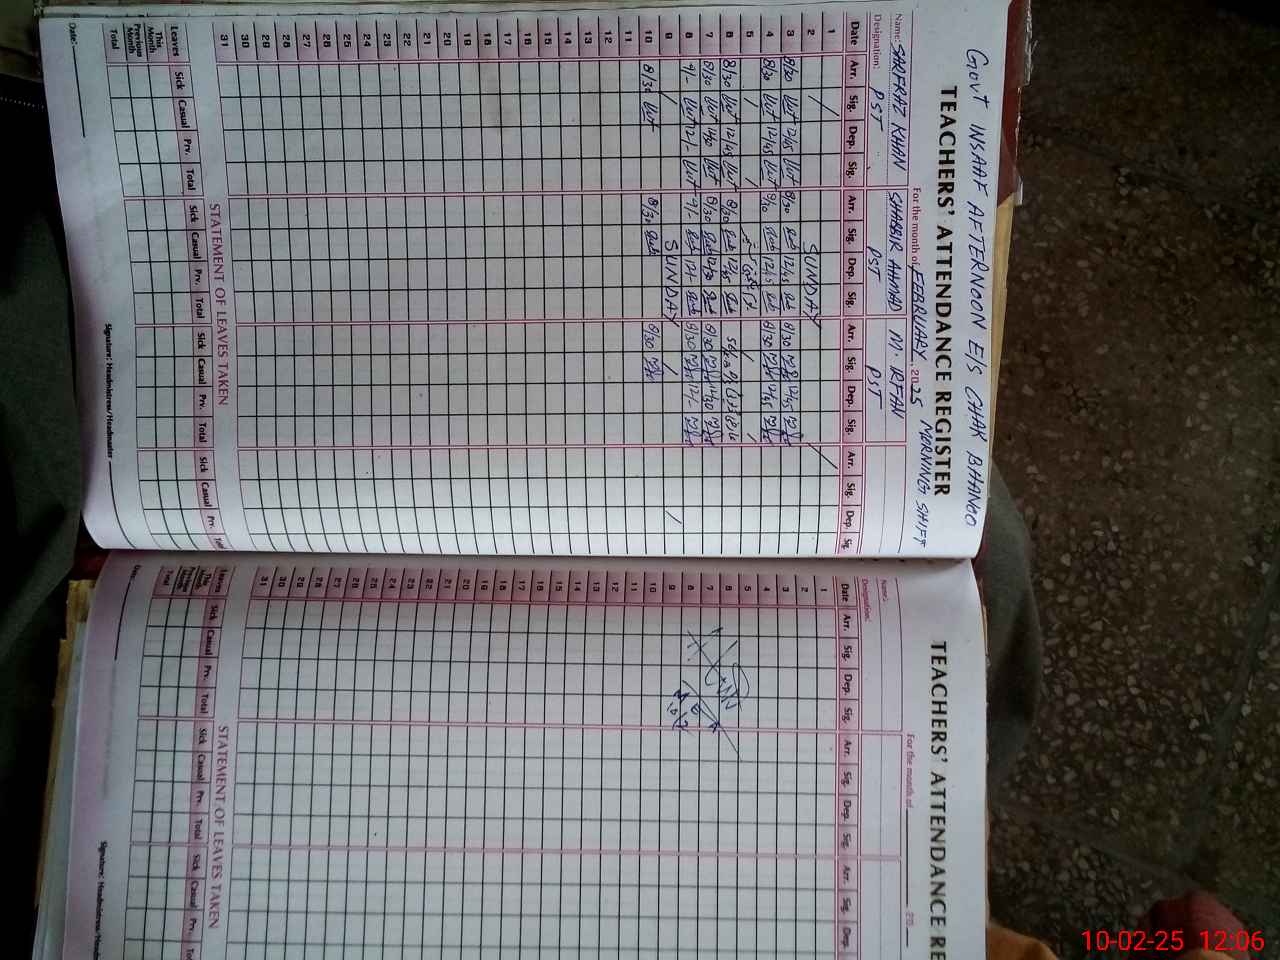 GOVT INSAAF AFTERNOON E/S CHAK BHANGO
TEACHERS' ATTENDANCE REGISTER
For the month of FEBRUARY, 2025 MORNING SHIFT
Name: SARFRAZ KHAN SHABBIR AHMAD M. IRFAN
Designation: PST PST PST
Date Arr. Sig. Dep. Sig. Arr. Sig. Dep. Sig. Arr. Sig. Dep. Sig. Arr. Sig. Dep. Sig.
1
2 SUNDAY
3 8/30 12/45 8/30 12/45 8/30 12/45
4 8/30 12/45 8/10 12/45 8/30 12/45
5
6 8/30 12/45 8/30 12/45
7 8/30 8/30 12/30 8/30
8 9/- 12/- 9/- 12/- 8/30 12/-
9 SUNDAY
10 8/30 8/30 8/30
11
12
13
14
15
16
17
18
19
20
21
22
23
24
25
26
27
28
29
30
31
STATEMENT OF LEAVES TAKEN
Leaves Sick Casual Prv. Total Sick Casual Prv. Total Sick Casual Prv. Total Sick Casual Prv.
This Month
Previous Month
Total
Date: Signature: Headmistress/Headmaster
TEACHERS' ATTENDANCE RE
For the month of 20
Name:
Designation:
Date Arr. Sig. Dep. Sig. Arr. Sig. Dep. Sig. Arr. Sig. Dep.
1
2
3
4
5
6
7
8
9
10
11
12
13
14
15
16
17
18
19
20
21
22
23
24
25
26
27
28
29
30
31
STATEMENT OF LEAVES TAKEN
Leaves Sick Casual Prv. Total Sick Casual Prv. Total Sick Casual Prv.
This Month
Previous Month
Total
Signature: Headmistress/Head
10-02-25 12:06